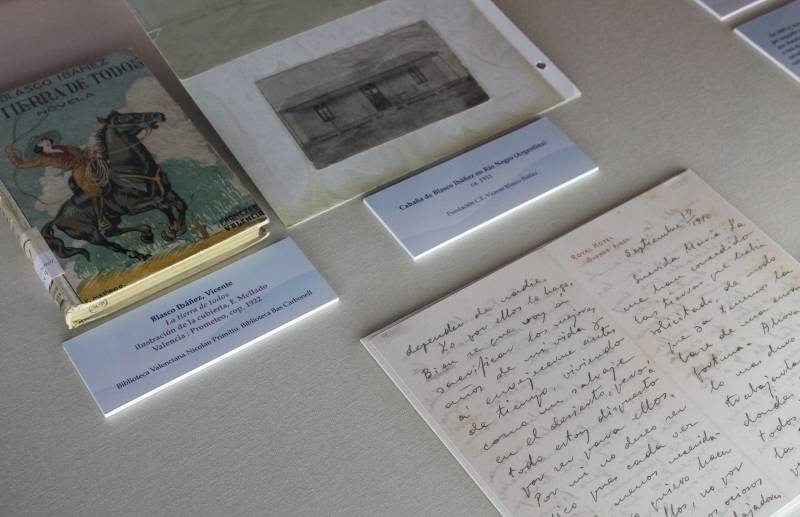 BLASCO IBÁÑEZ
TIERRA DE TODOS
NOVELA
PROMETEO
VALENCIA
Blasco Ibáñez, Vicente
La tierra de todos
ilustración de la cubierta, E. Mellado
Valencia : Prometeo, cop. 1922
Biblioteca Valenciana Nicolau Primitiu. Biblioteca Bas Carbonell
Cabaña de Blasco Ibáñez en Río Negro (Argentina)
ca. 1911
Fundación C.E. Vicente Blasco Ibáñez
depender de nadie.
Yo por ellos lo hago.
Bien se que voy á
sacrificar los mejores
años de mi vida y
á envejecerme antes
de tiempo, viviendo
como un salvaje
en el desierto, pero á
todo estoy dispuesto
por ser para ellos.
Por mi no deseo ser
rico pues cada vez
menos
quiero hacer
ellos, no por
ROYAL HOTEL
BUENOS AIRES
Septiembre 17
1910
Querida María: Ya
me han concedido
las tierras que había
solicitado, de modo
que ya tenemos la
base de una gran
fortuna. Ahora
lo mas duro
trabajarlas
donde
todos
la